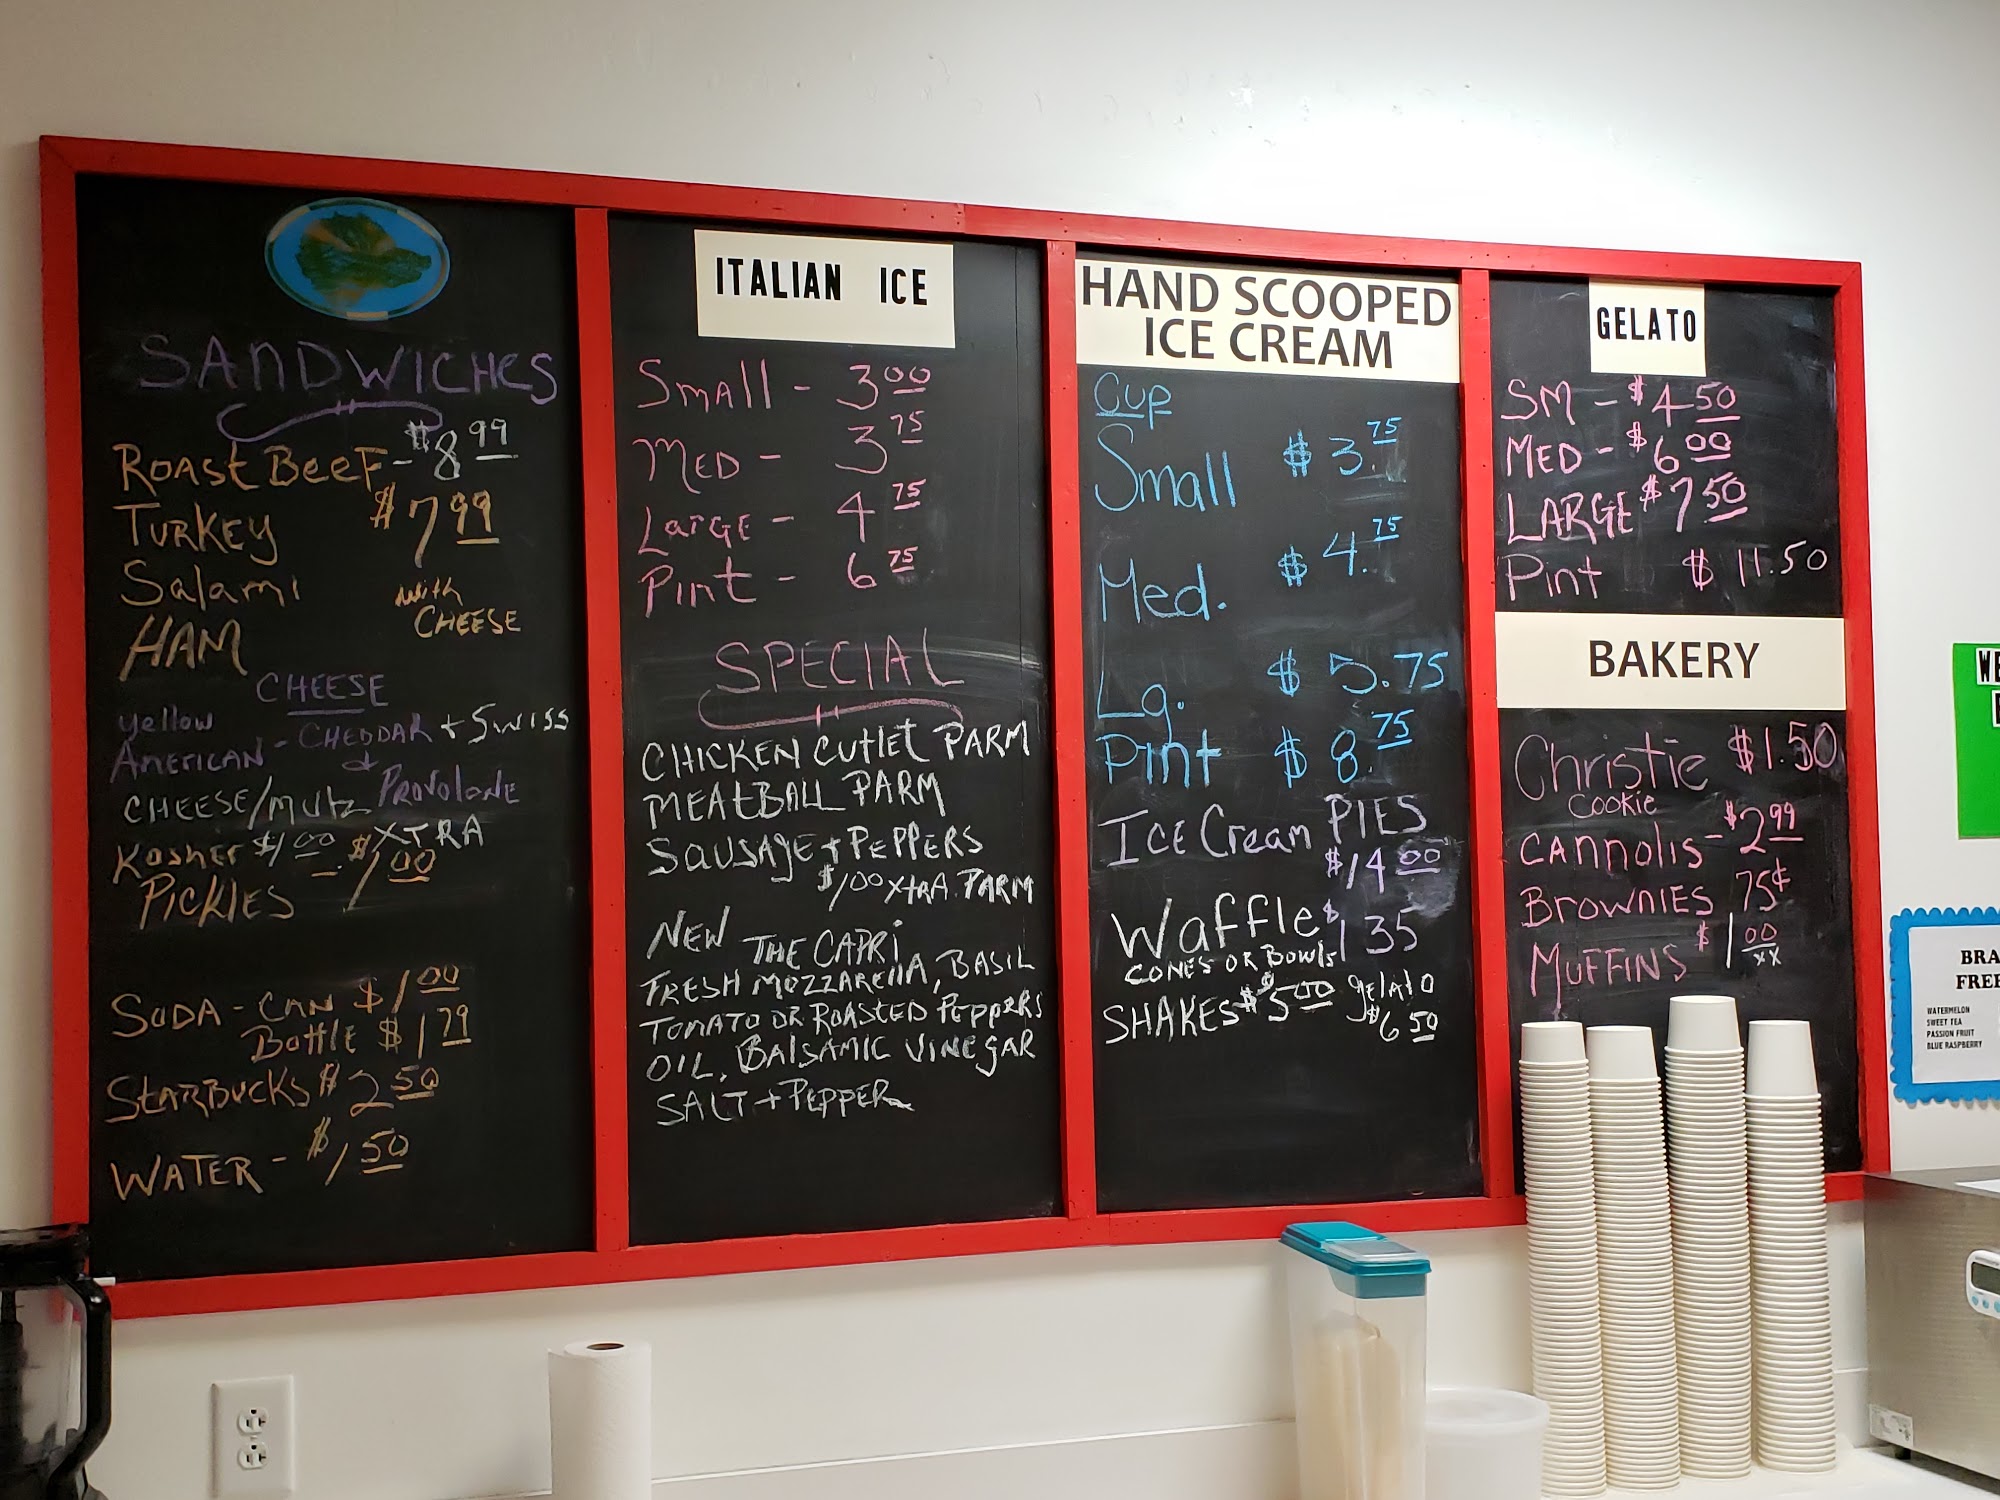 SANDWICHES
Roast Beef - $8.99
Turkey $7.99
Salami with
HAM CHEESE
CHEESE
yellow
American - CHEDDAR + Swiss
CHEESE/MUtz PROVOLONE
Kosher $1.00 XTRA
PICKLES $1.00
SODA - CAN $1.00
Bottle $1.79
STARBUCKS $2.50
WATER - $1.50
ITALIAN ICE
Small - 3.00
MED - 3.75
Large - 4.75
Pint - 6.75
SPECIAL
CHICKEN CUTLET PARM
MEATBALL PARM
SAUSAGE + PEPPERS
$1.00 XtrA PARM
NEW THE CAPRI
FRESH MOZZARELLA, BASIL
TOMATO OR ROASTED PEPPERS
OIL, BALSAMIC VINEGAR
SALT + PEPPER
HAND SCOOPED
ICE CREAM
Cup
Small $3.75
Med. $4.75
Lg. $5.75
Pint $8.75
ICE Cream PIES
$14.00
Waffle $1.35
CONES OR Bowls
SHAKES $5.00 gelato
$6.50
GELATO
SM - $4.50
MED - $6.00
LARGE $7.50
Pint $11.50
BAKERY
Christie $1.50
COOKIE
CANNOLIS - $2.99
BROWNIES 75¢
MUFFINS $1.00
xx
WE
BRA
FREE
WATERMELON
SWEET TEA
PASSION FRUIT
BLUE RASPBERRY